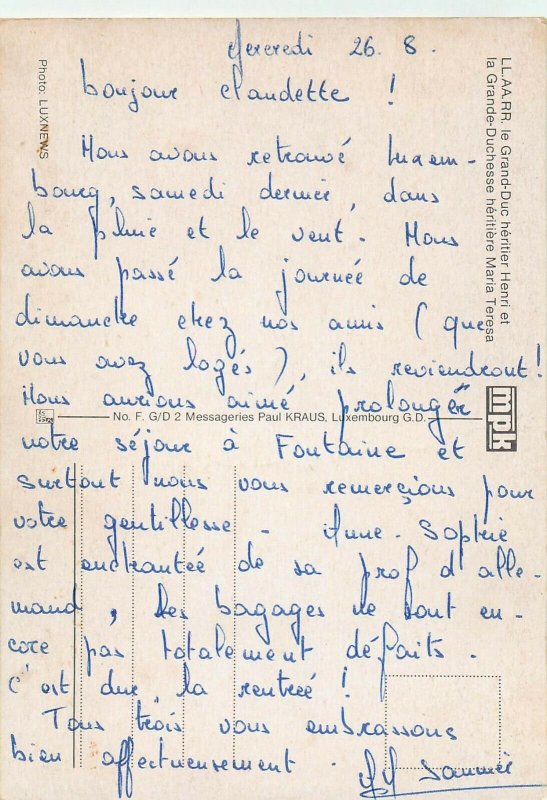 Mercredi 26.8.
bonjour Claudette !
Nous avons retrouvé Luxem-
bourg, samedi dernier, dans
la pluie et le vent. Nous
avons passé la journée de
dimanche chez nos amis (que
vous avez logés), ils reviendront!
Nous aurions aimé prolonger
notre séjour à Fontaine et
surtout nous vous remercions pour
votre gentillesse. Anne-Sophie
est enchantée de sa prof d'alle-
mand, les bagages ne sont en-
core pas totalement défaits.
C'est dur, la rentrée !
Tous trois vous embrassons
bien affectueusement.
LL.AA.RR. le Grand-Duc héritier Henri et
la Grande-Duchesse héritière Maria Teresa
Photo: LUXNEWS
No. F. G/D 2 Messageries Paul KRAUS, Luxembourg G.D.
mpk